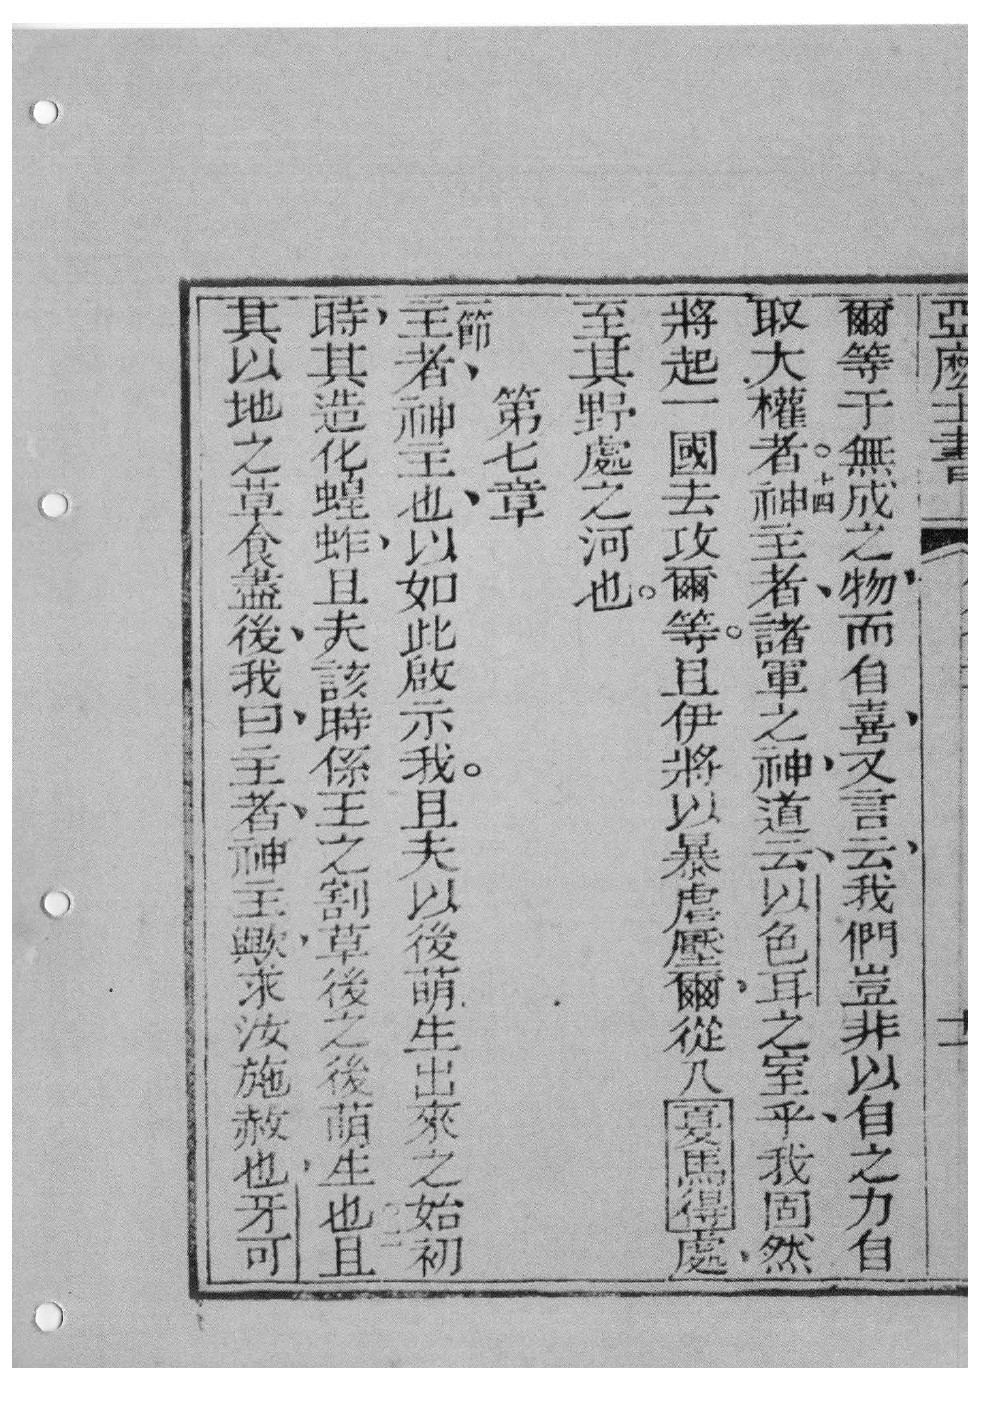 亞麼士書 十一
爾等于無成之物、而自喜、又言云、我們豈非以自之力自
取大權者。十四神主者、諸軍之神道云、以色耳之室乎、我固然
將起一國去攻爾等。且伊將以暴虐壓爾、從入夏馬得處、
至其野處之河也。
第七章
一節主者、神主也、以如此啟示我。且夫以後萌生出來之始初
時、其造化蝗蚱、且夫該時係王之割草後之後萌生也。二且
其以地之草食盡後、我曰、主者、神主歟、求汝施赦也、牙可